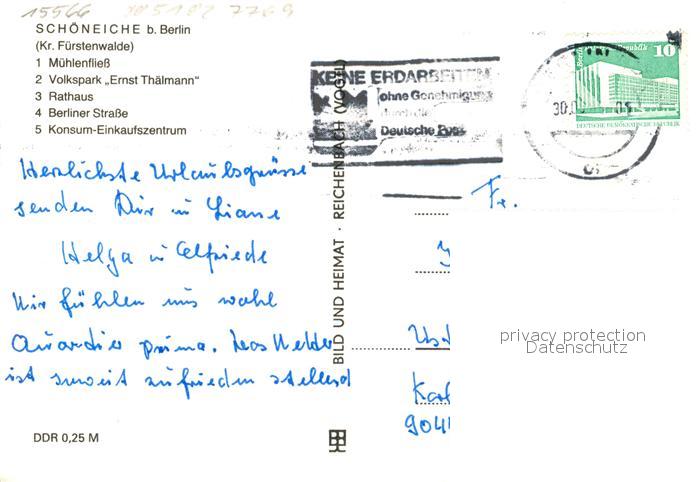 15566
7769
SCHÖNEICHE b. Berlin
(Kr. Fürstenwalde)
1 Mühlenfließ
2 Volkspark „Ernst Thälmann"
3 Rathaus
4 Berliner Straße
5 Konsum-Einkaufszentrum
Herzlichste Urlaubsgrüsse
senden Dir u Liane
Helga u Elfriede
Wir fühlen uns wohl
Quardier prima. Das Wetter
ist soweit zufrieden stellend
DDR 0,25 M
BILD UND HEIMAT · REICHENBACH (VOGTL)
KEINE ERDARBEITEN
ohne Genehmigung
Deutsche Post
30.
10
DEUTSCHE DEMOKRATISCHE REPUBLIK
Fr.
Kar
904
privacy protection
Datenschutz